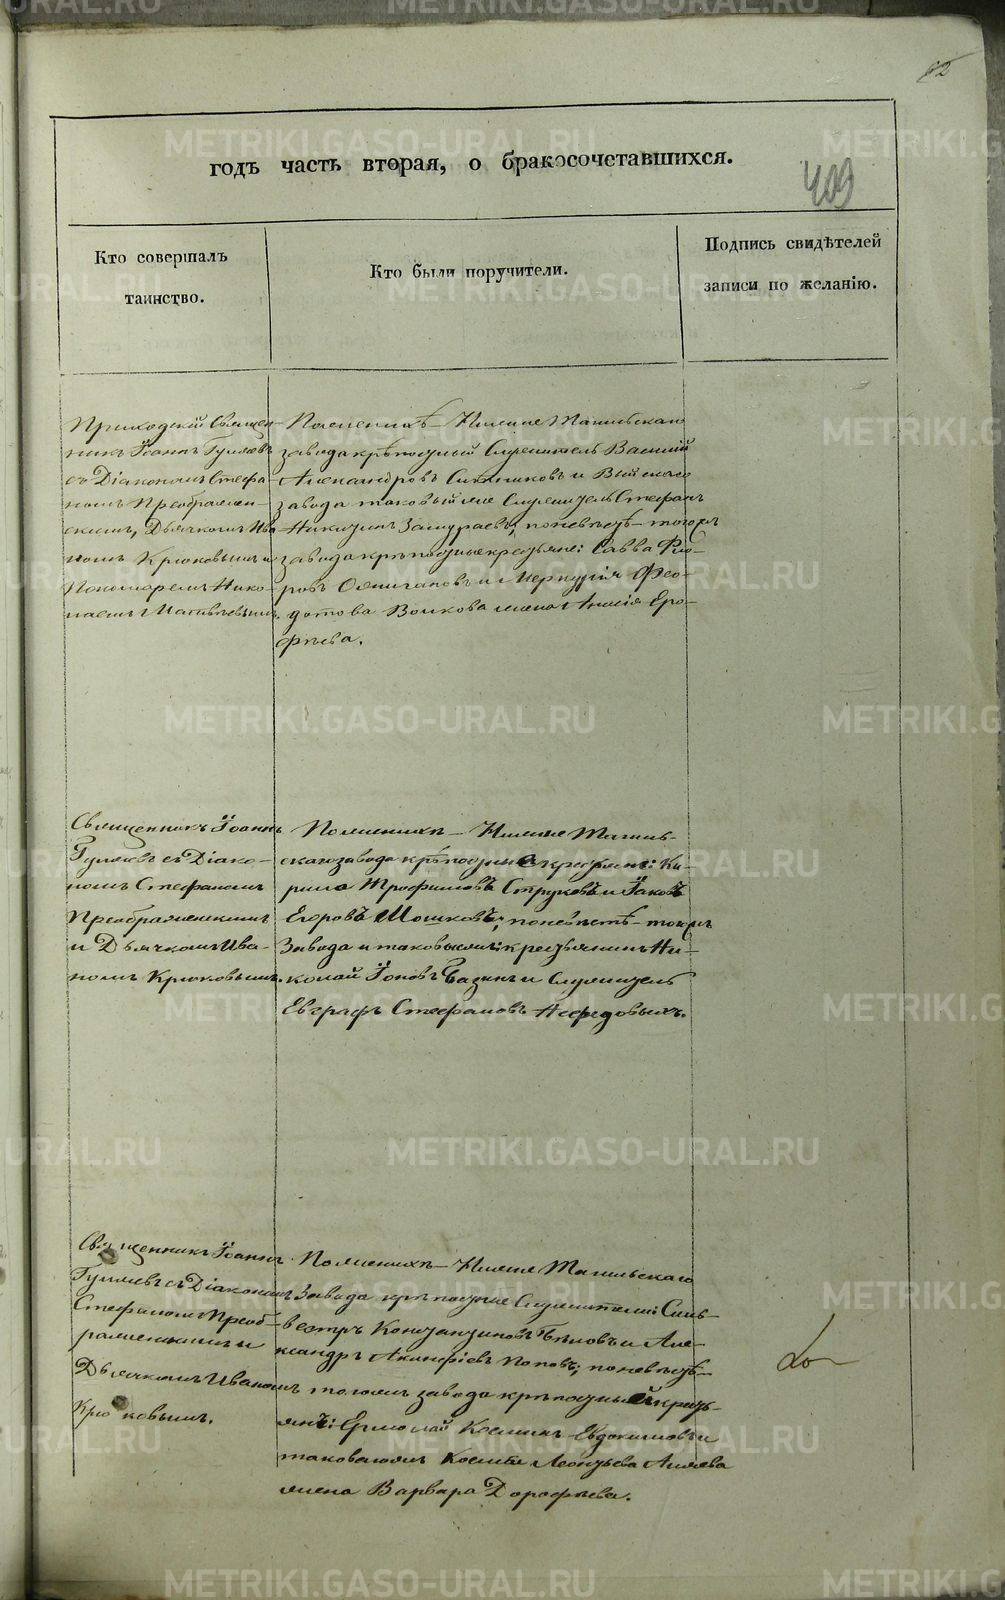 62
годъ часть вторая, о бракосочетавшихся.
409
Кто совершалъ
таинство.
Кто были поручители.
Подпись свидѣтелей
записи по желанію.
Приходскій Священ-
никъ Іоаннъ Гуляевъ
съ Діакономъ Стефа-
номъ Преображен-
скимъ, Дьячкомъ Ива-
номъ Крюковымъ и
Пономаремъ Нико-
лаемъ
По женихѣ – Нижне Тагильскаго
завода крѣпостный Служитель Василій
Александровъ и Выйскаго
завода таковый же Служитель Стефанъ
Никитинъ по невѣстѣ – того жъ
завода крѣпостные крестьяне: Савва
и Меркурія Фео-
дотова Волкова жена Анисія Еро-
фѣева.
Священникъ Іоаннъ
Гуляевъ съ Діако-
номъ Стефаномъ
Преображенскимъ
и Дьячкомъ Ива-
номъ Крюковымъ.
По женихѣ – Нижне Тагиль-
скаго завода крѣпостные крестьяне: Ки-
рило Трофимовъ Струковъ и Іаковъ
Егоровъ Мошковъ; по невѣстѣ – того жъ
Завода и таковыежъ: крестьянинъ Ни-
колай Іоновъ и Служитель
Евграфъ Стефановъ
Священникъ Іоаннъ
Гуляевъ съ Діакономъ
Стефаномъ Преоб-
раженскимъ и
Дьячкомъ Иваномъ
Крюковымъ.
По женихѣ – Нижне Тагильскаго
Завода крѣпостные Служители: Силь-
вестръ Константиновъ Бѣловъ и Але-
ксандръ Акинфіевъ Поповъ; по невѣстѣ –
тогожъ завода крѣпостный крестья-
янъ: Ермолай Козминъ Евдокимовъ и
таковагожъ Козмы Леонтьева
жена Варвара Дорофѣева.
METRIKI.GASO-URAL.RU